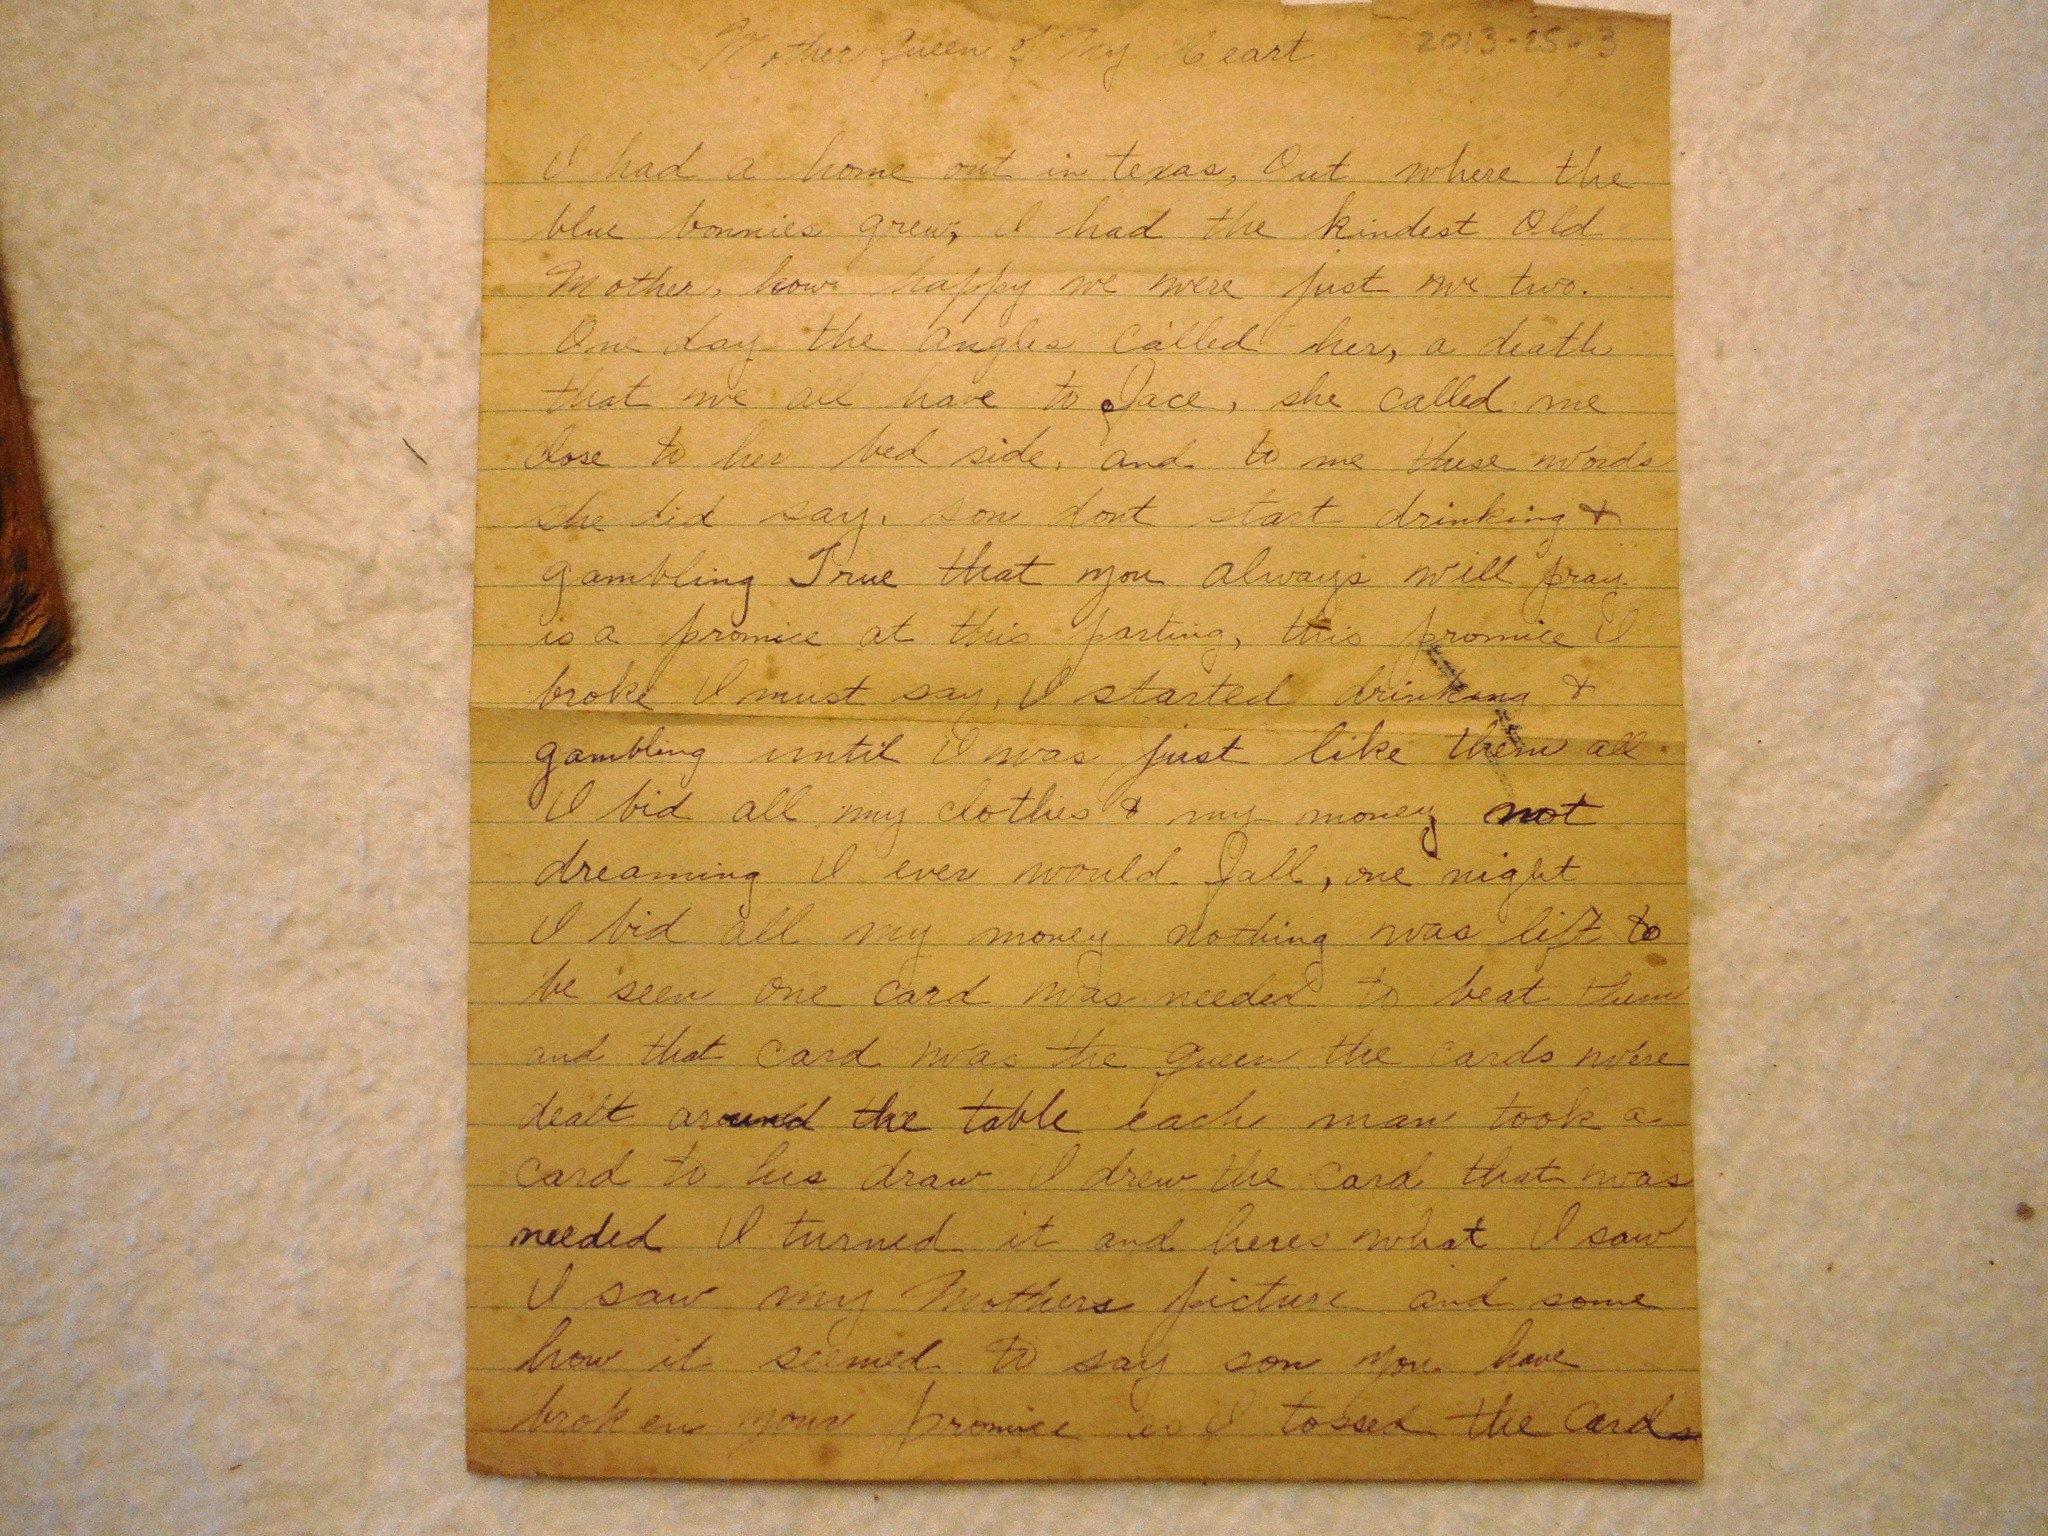 Mother Queen of My Heart 2013-25-3
I had a home out in texas, Out where the
blue bonnies grew, I had the kindest Old
Mother, how happy we were just we two.
One day the angles Called her, a death
that we all have to face, she called me
close to her bed side, and to me these words
she did say, son dont start drinking &
gambling True that you always will pray
is a promice at this parting, this promice I
broke I must say, I started drinking &
gambling until I was just like them all
I bid all my clothes & my money not
dreaming I ever would fall, one night
I bid all my money nothing was lift to
be seen one card was needed to beat them
and that card was the queen the cards were
dealt around the table each man took a
card to his draw I drew the card that was
needed I turned it and heres what I saw
I saw my Mothers picture and some
how it seemed to say son you have
broken your promice so I tossed the Cards